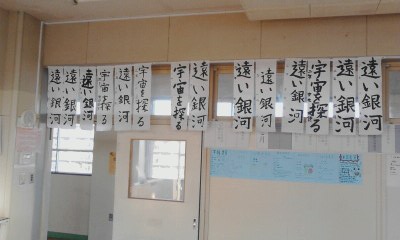 遠い銀河
遠い銀河
遠い銀河
宇宙を探る
遠い銀河
宇宙を探る
宇宙を探る
遠い銀河
遠い銀河
遠い銀河
遠い銀河
宇宙を探る
遠い銀河
遠い銀河